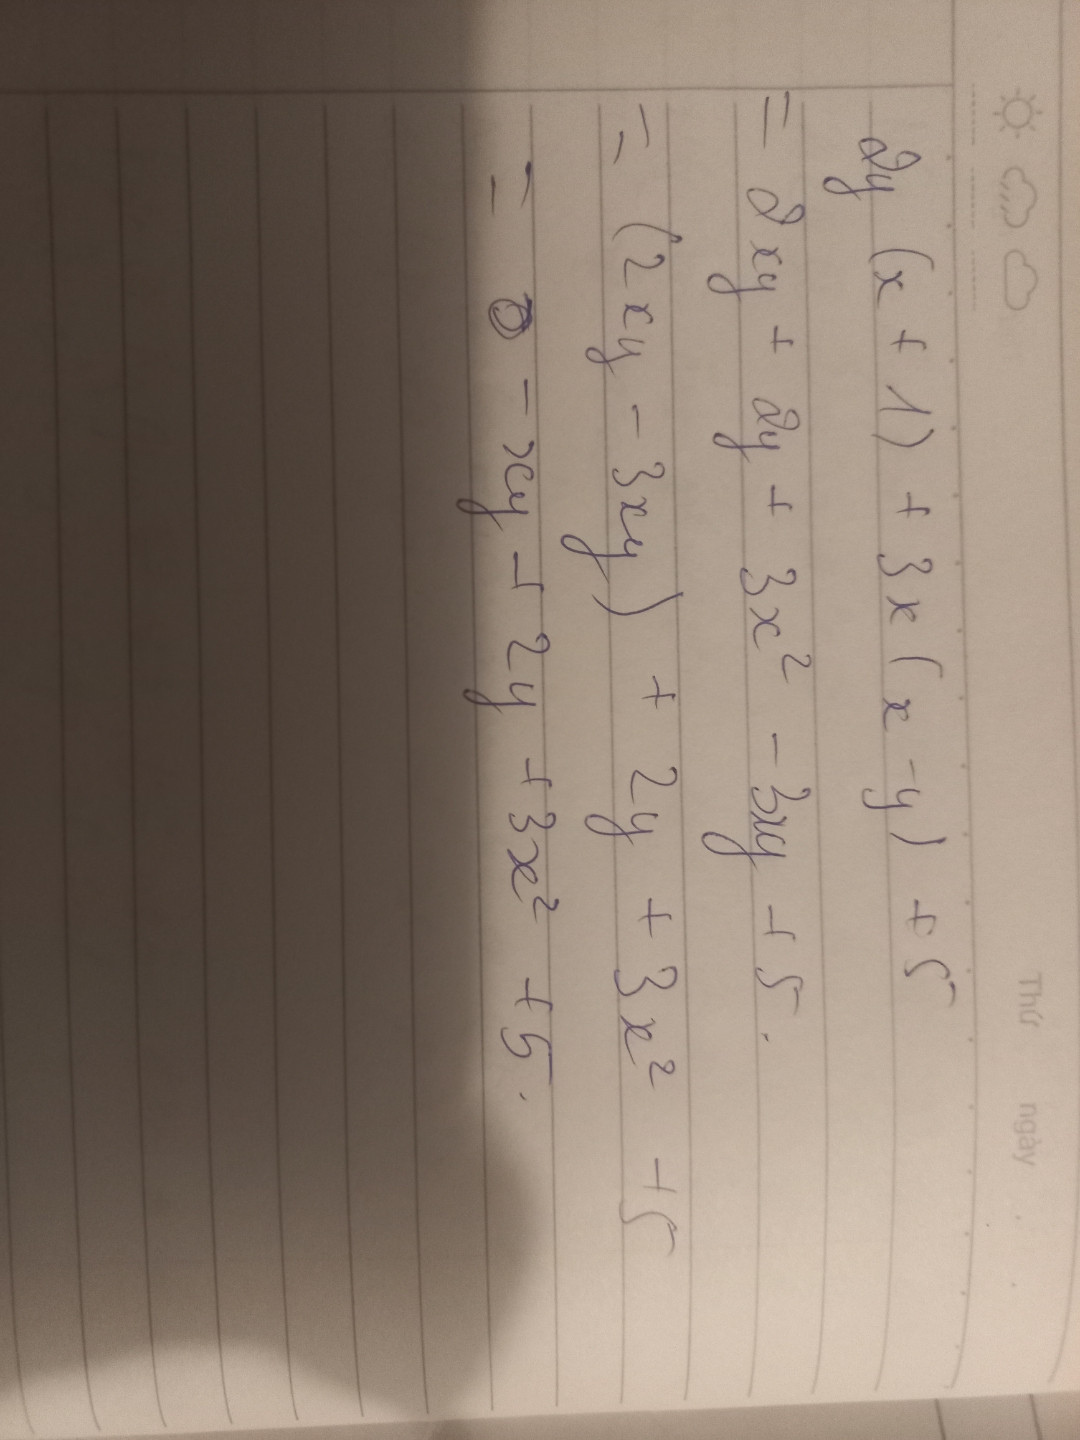 Thứ ngày
2y (x + 1) + 3x (x - y) + 5
= 2xy + 2y + 3x² - 3xy + 5.
= (2xy - 3xy) + 2y + 3x² + 5
= - xy + 2y + 3x² + 5.